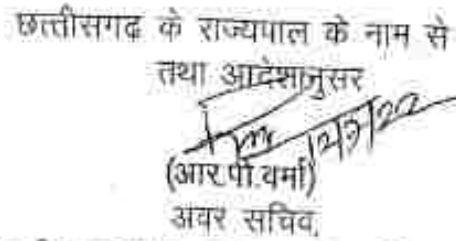 छत्तीसगढ़ के राज्यपाल के नाम से
तथा आदेशानुसर
12/5/22
(आर.पी.वर्मा)
अवर सचिव,